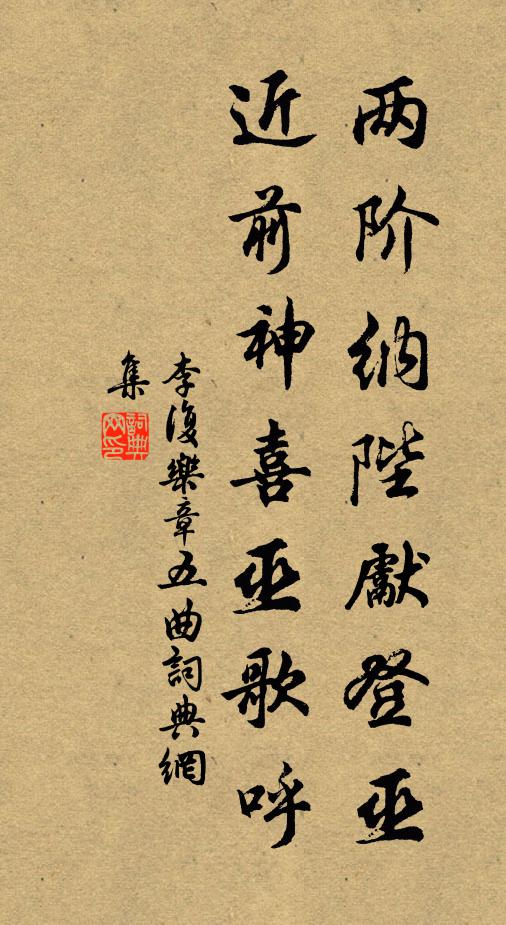 两阶纳陛獻登巫
近前神喜巫歌呼
李復樂章五曲詞典網
集
詞典網印